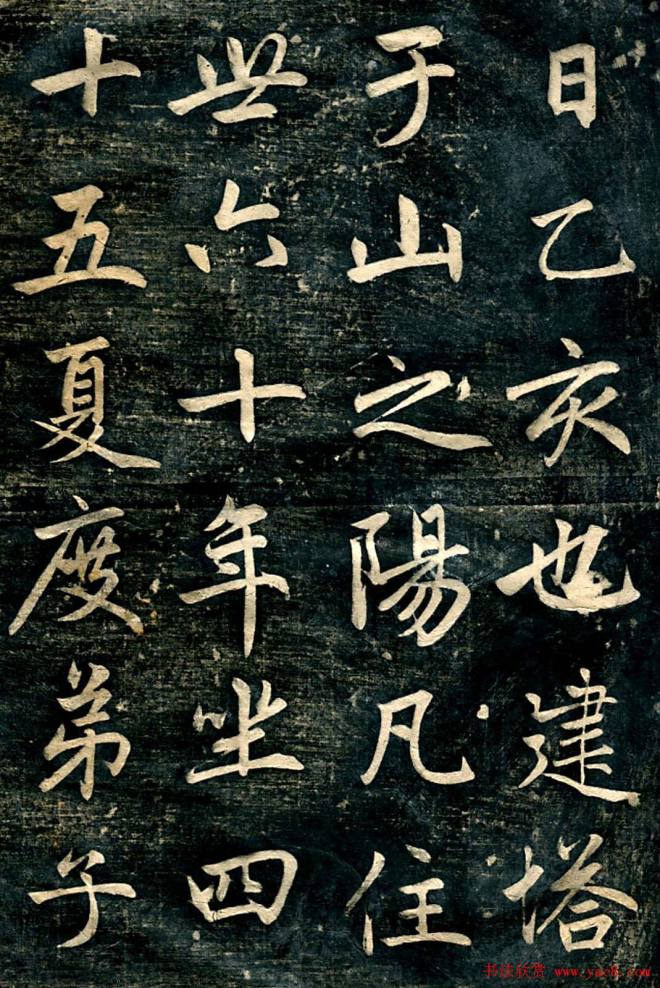 日乙亥也建塔
于山之陽凡住
世六十年坐四
十五夏度弟子
书法欣赏 www.yac8.com